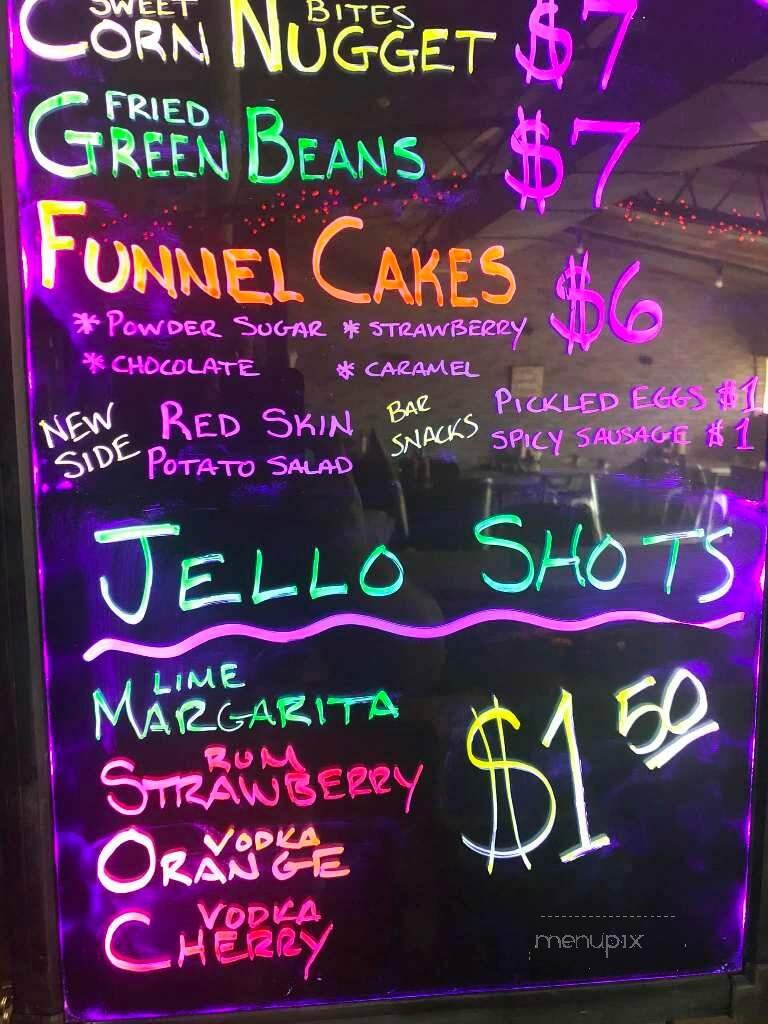 SWEET BITES
CORN NUGGET $7
FRIED
GREEN BEANS $7
FUNNEL CAKES $6
* POWDER SUGAR * STRAWBERRY
* CHOCOLATE * CARAMEL
NEW SIDE RED SKIN POTATO SALAD
BAR SNACKS PICKLED EGGS $1
SPICY SAUSAGE $1
JELLO SHOTS
LIME
MARGARITA $1 50
RUM
STRAWBERRY
VODKA
ORANGE
VODKA
CHERRY
menupix